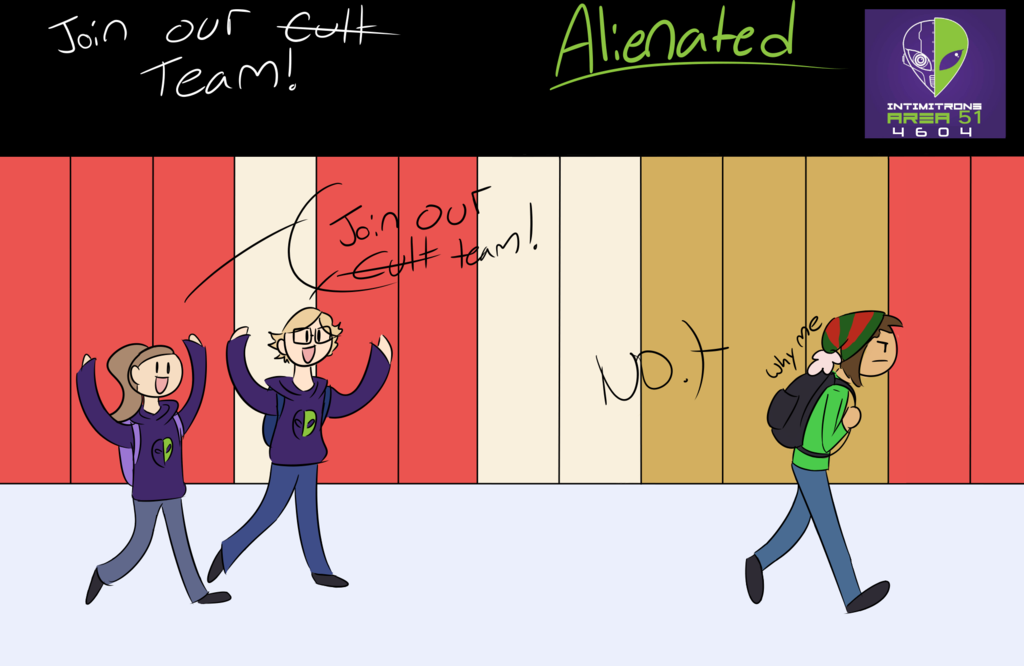 Join our Cult
Team!
Alienated
INTIMITRONS
AREA 51
4604
Join our
Cult team!
No.
why me